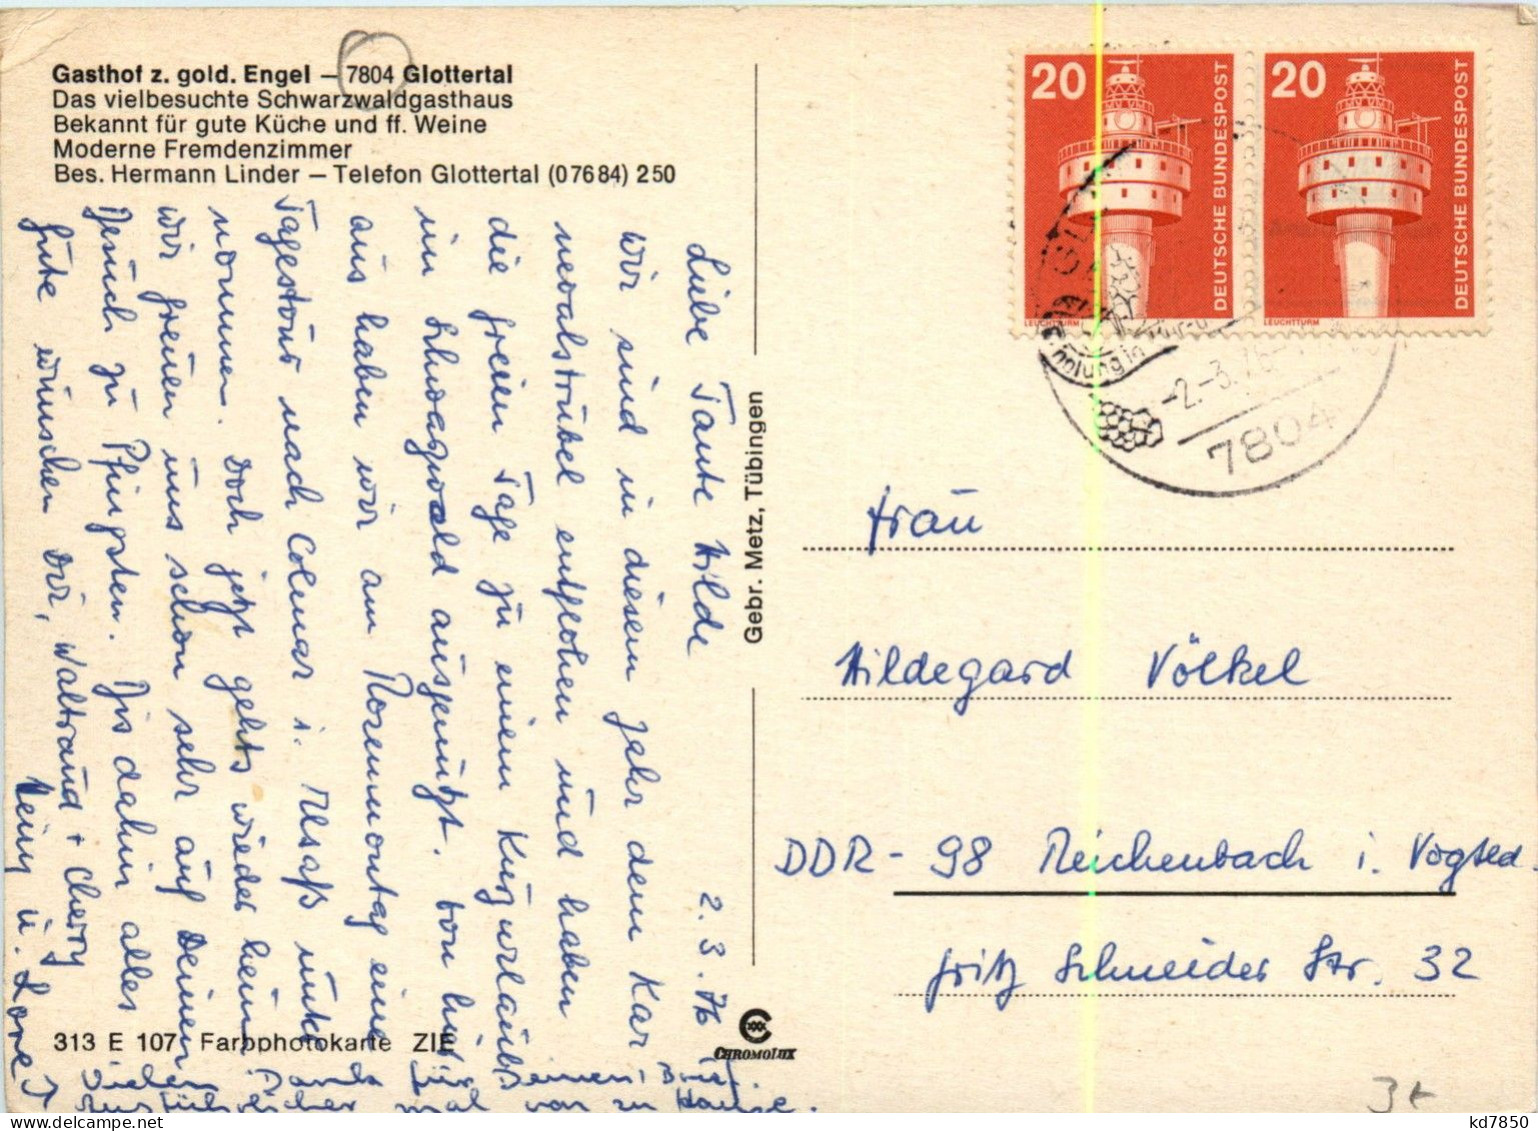 Gasthof z. gold. Engel – 7804 Glottertal
Das vielbesuchte Schwarzwaldgasthaus
Bekannt für gute Küche und ff. Weine
Moderne Fremdenzimmer
Bes. Hermann Linder – Telefon Glottertal (07684) 250
2.3.76
Liebe Tante Hilde
wir sind in diesem Jahr dem Kar
nevalstrubel entflohen und haben
die freien Tage zu einem Kurzurlaub
im Schwarzwald ausgenützt. Von hier
aus haben wir am Rosenmontag eine
Tagestour nach Colmar i. Elsaß unter
nommen. Doch jetzt gehts wieder heim
wir freuen uns schon sehr auf Deinen
Besuch zu Pfingsten. Bis dahin alles
Gute wünschen Dir, Waltraud + Cherry
Heinz u. Lore
Vielen Dank für Deinen Brief.
Ausführlicher mal von zu Hause.
313 E 107 Farbphotokarte ZIE
Gebr. Metz, Tübingen
CHROMOLUX
20
DEUTSCHE BUNDESPOST
LEUCHTTURM
20
DEUTSCHE BUNDESPOST
LEUCHTTURM
-2.-3.76
7804
Frau
Hildegard Völkel
DDR - 98 Reichenbach i. Vogtld.
Fritz Schneider Str. 32
kd7850